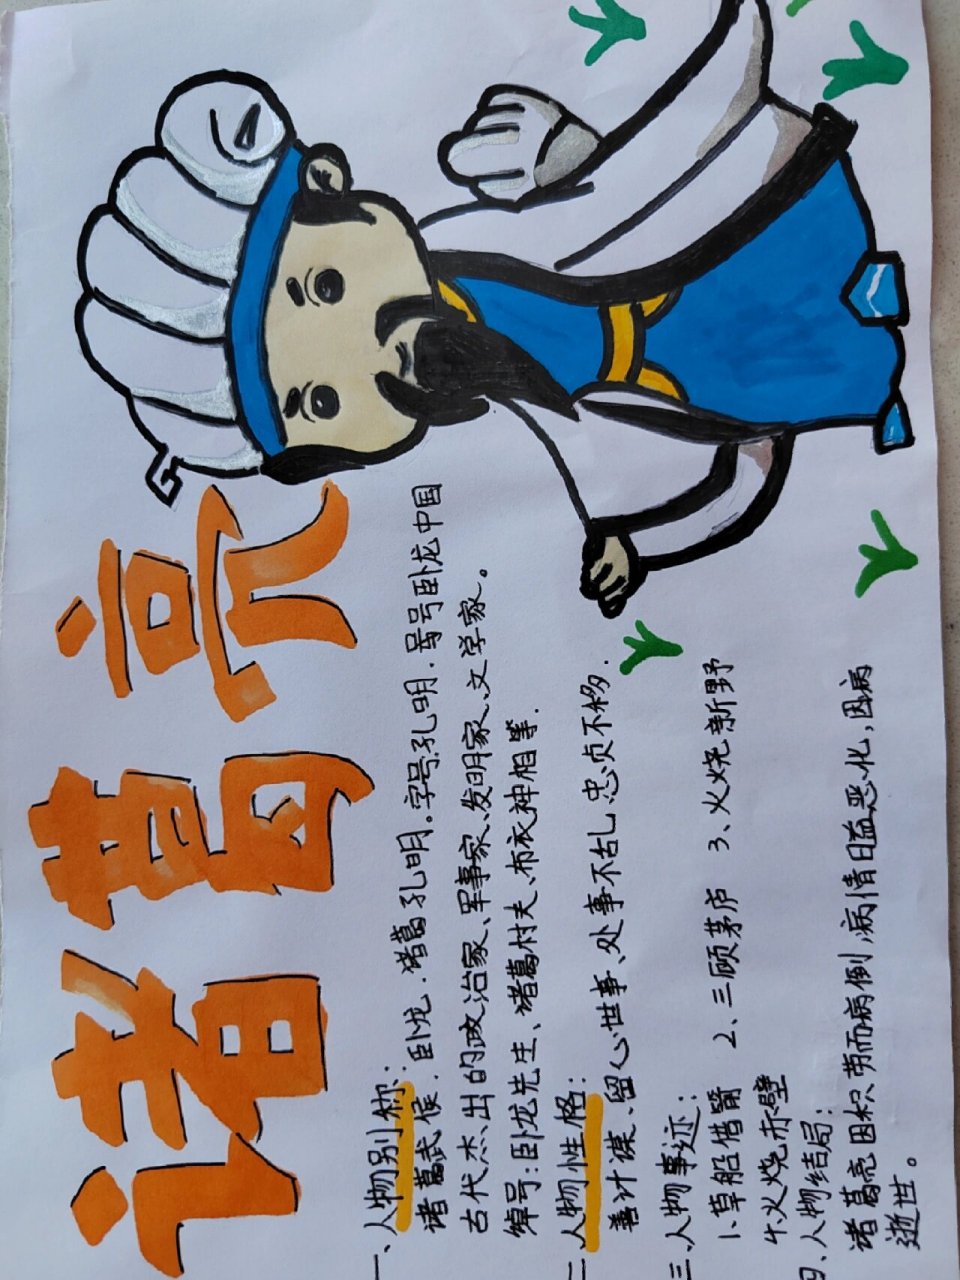 诸葛亮
一、人物别称:
诸葛武侯.卧龙.诸葛孔明.字号:孔明.号卧龙中国
古代杰出的政治家、军事家、发明家、文学家。
绰号:卧龙先生、诸葛村夫、布衣神相等.
二、人物性格:
善计谋、留心世事、处事不乱、忠贞不移.
三、人物事迹:
1、草船借箭 2、三顾茅庐 3、火烧新野
4、火烧赤壁
四、人物结局:
诸葛亮因积劳而病倒,病情日益恶化,因病
逝世。